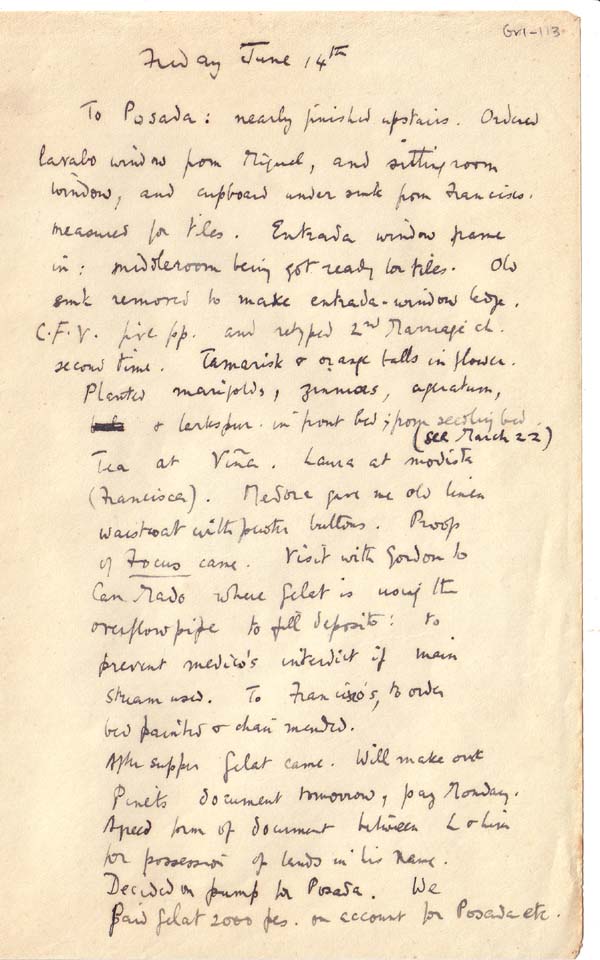 GVI-113
Friday June 14th
To Posada: nearly finished upstairs. Ordered
lavabo window from Miguel, and sitting room
window, and cupboard under sink from Francisco.
measured for tiles. Entrada window frame
in: middleroom being got ready for tiles. Old
sink removed to make entrada-window ledge.
C.F.V. five pp. and retyped 2nd Marriage ch.
second time. Tamarisk & orange balls in flower.
Planted marigolds, zinnias, ageratum,
& larkspur in front bed; from seedling bed.
(see March 22)
Tea at Viña. Laura at modista
(Francisca). Medora gave me old linen
waistcoat with pewter buttons. Proofs
of Focus came. Visit with Gordon to
Can Mado where Gelat is using the
overflow pipe to fill deposito: to
prevent medico's interdict if main
stream used. To Francisco's, to order
bed painted & chair mended.
After supper Gelat came. Will make out
Pinets document tomorrow, pay Monday.
Agreed form of document between L & him
for possession of lands in his name.
Decided on pump for Posada. We
paid Gelat 2000 pes. on account for Posada etc.